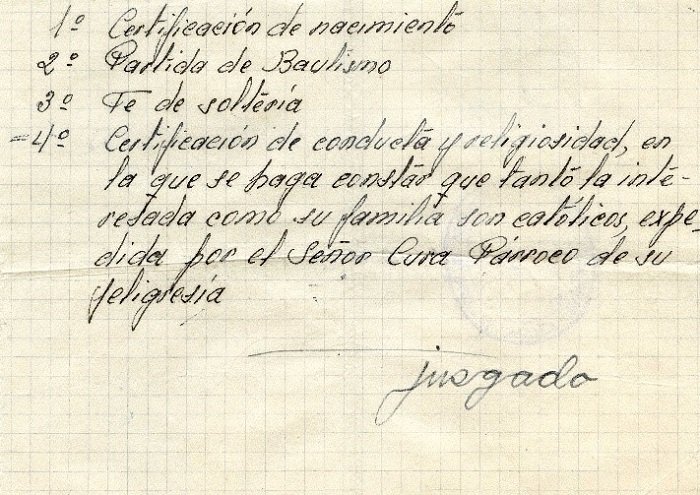 1º Certificación de nacimiento
2º Partida de Bautismo
3º Fe de soltería
=4º Certificación de conducta y religiosidad, en
la que se haga constar que tanto la inte-
resada como su familia son católicos, expe-
dida por el Señor Cura Párroco de su
feligresía
jusgado